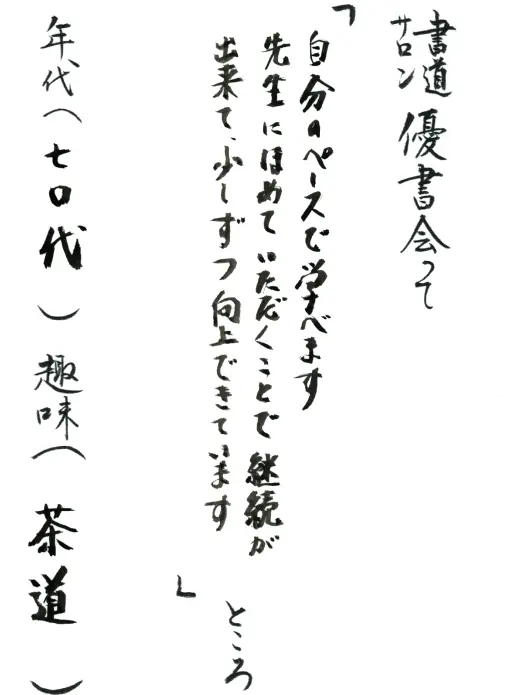 書道サロン 優書会って
「自分のペースで学べます
先生にほめていただくことで継続が
出来て、少しずつ向上できています」
ところ
年代（七〇代） 趣味（茶道）